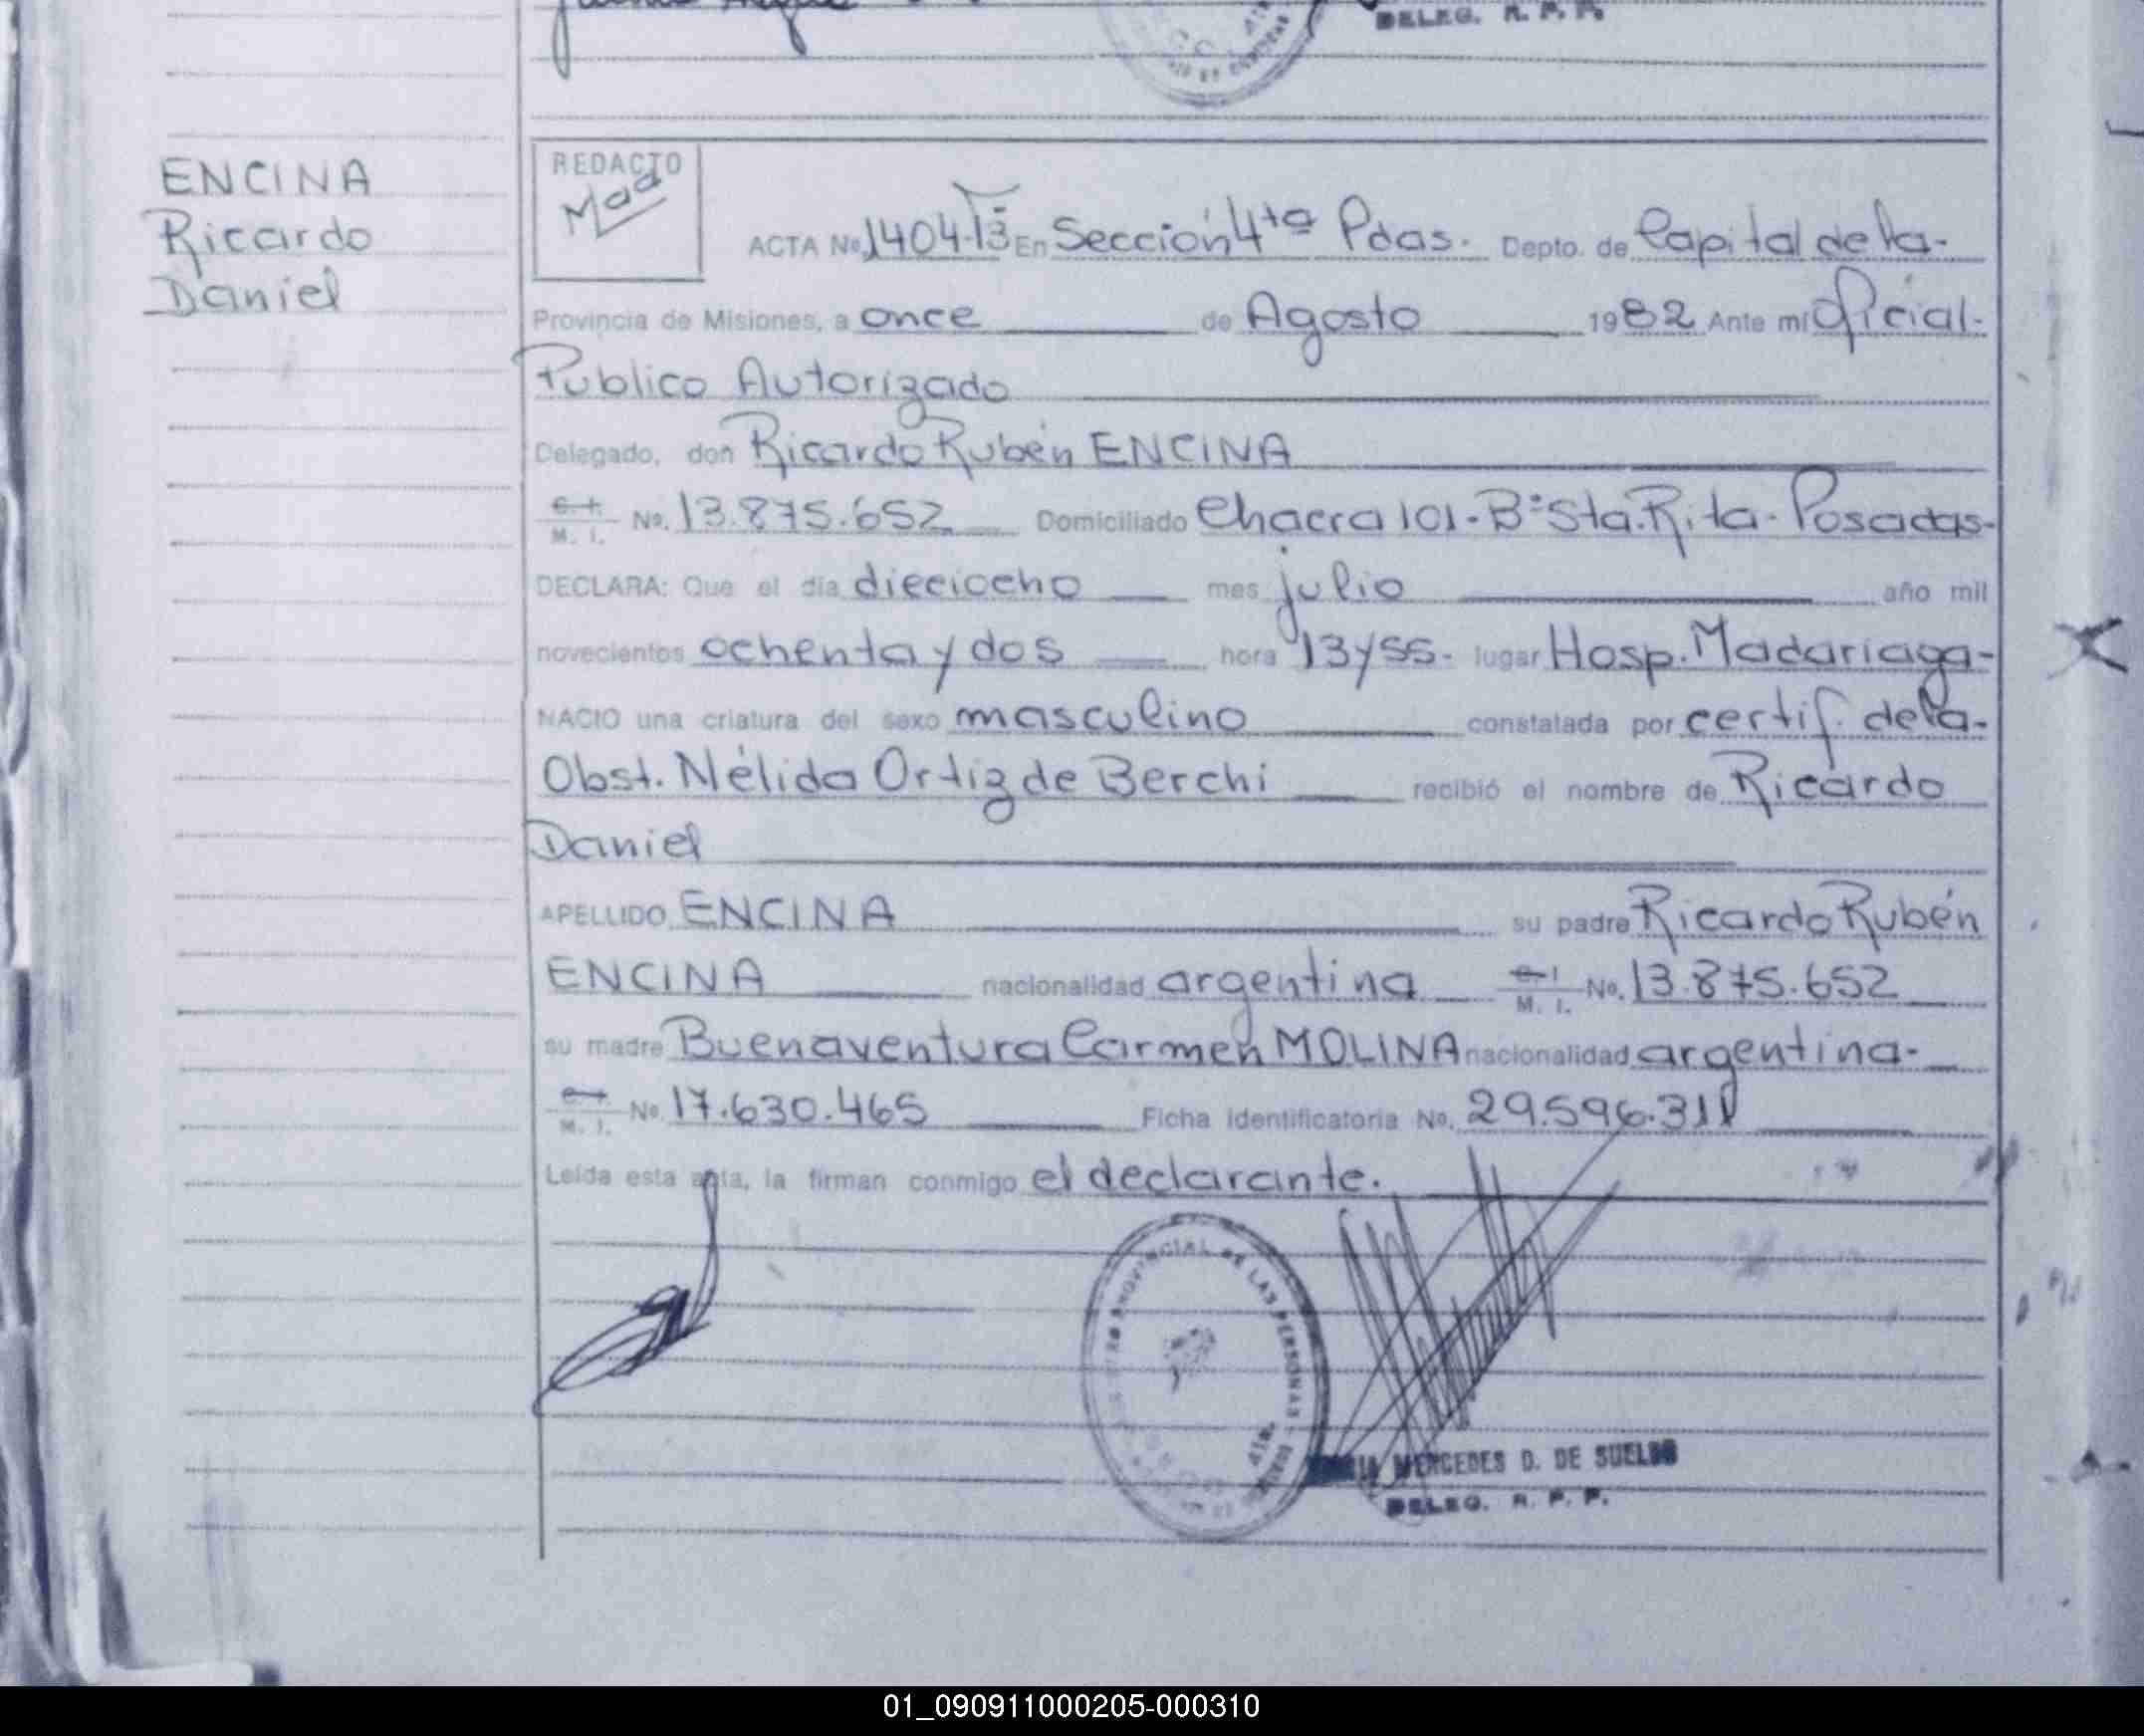 DELEG. R. P. P.
ENCINA
Ricardo
Daniel
REDACTO
Mad
ACTA No. 1404-T3 En Sección 4ta Pdas. Depto. de Capital de la-
Provincia de Misiones, a once de Agosto 1982 Ante mí Oficial-
Publico Autorizado
Delegado, don Ricardo Rubén ENCINA
M. I. No. 13.875.652 Domiciliado Chacra 101-B° Sta. Rita-Posadas-
DECLARA: Que el día dieciocho mes julio año mil
novecientos ochenta y dos hora 13y55- lugar Hosp. Madariaga-
NACIO una criatura del sexo masculino constatada por certif. de la-
Obst. Nélida Ortiz de Berchi recibió el nombre de Ricardo
Daniel
APELLIDO ENCINA su padre Ricardo Rubén
ENCINA nacionalidad argentina M. I. No. 13.875.652
su madre Buenaventura Carmen MOLINA nacionalidad argentina-
M. I. No. 17.630.465 Ficha Identificatoria No. 29.596.311
Leída esta acta, la firman conmigo el declarante.
PROVINCIAL DE LAS PERSONAS
MERCEDES D. DE SUELDO
DELEG. R. P. P.
01_090911000205-000310